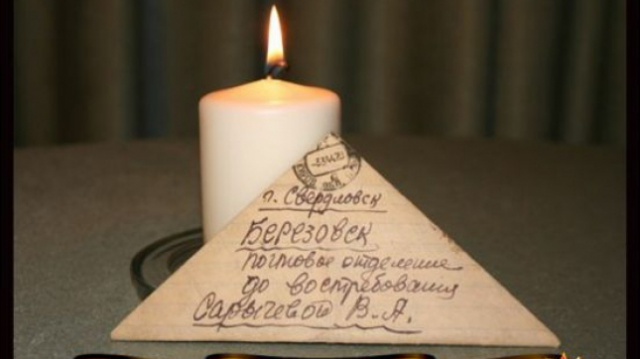 п. Свердловск
Березовск
почтовое отделение
до востребования
Сарычевой В.А.